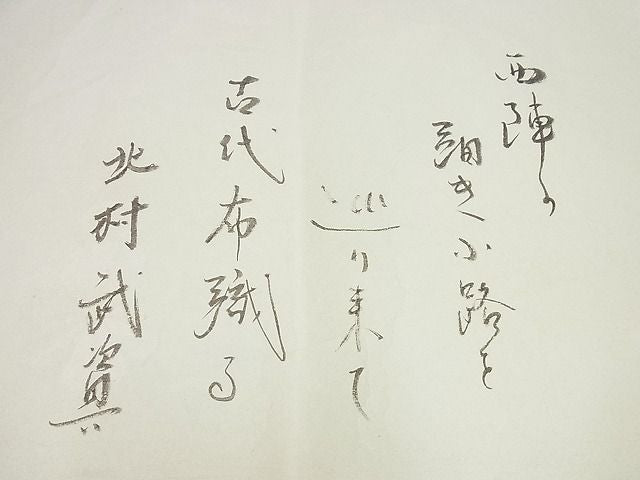 西陣の
細き小路を
巡り来て
古代布織る
北村武資